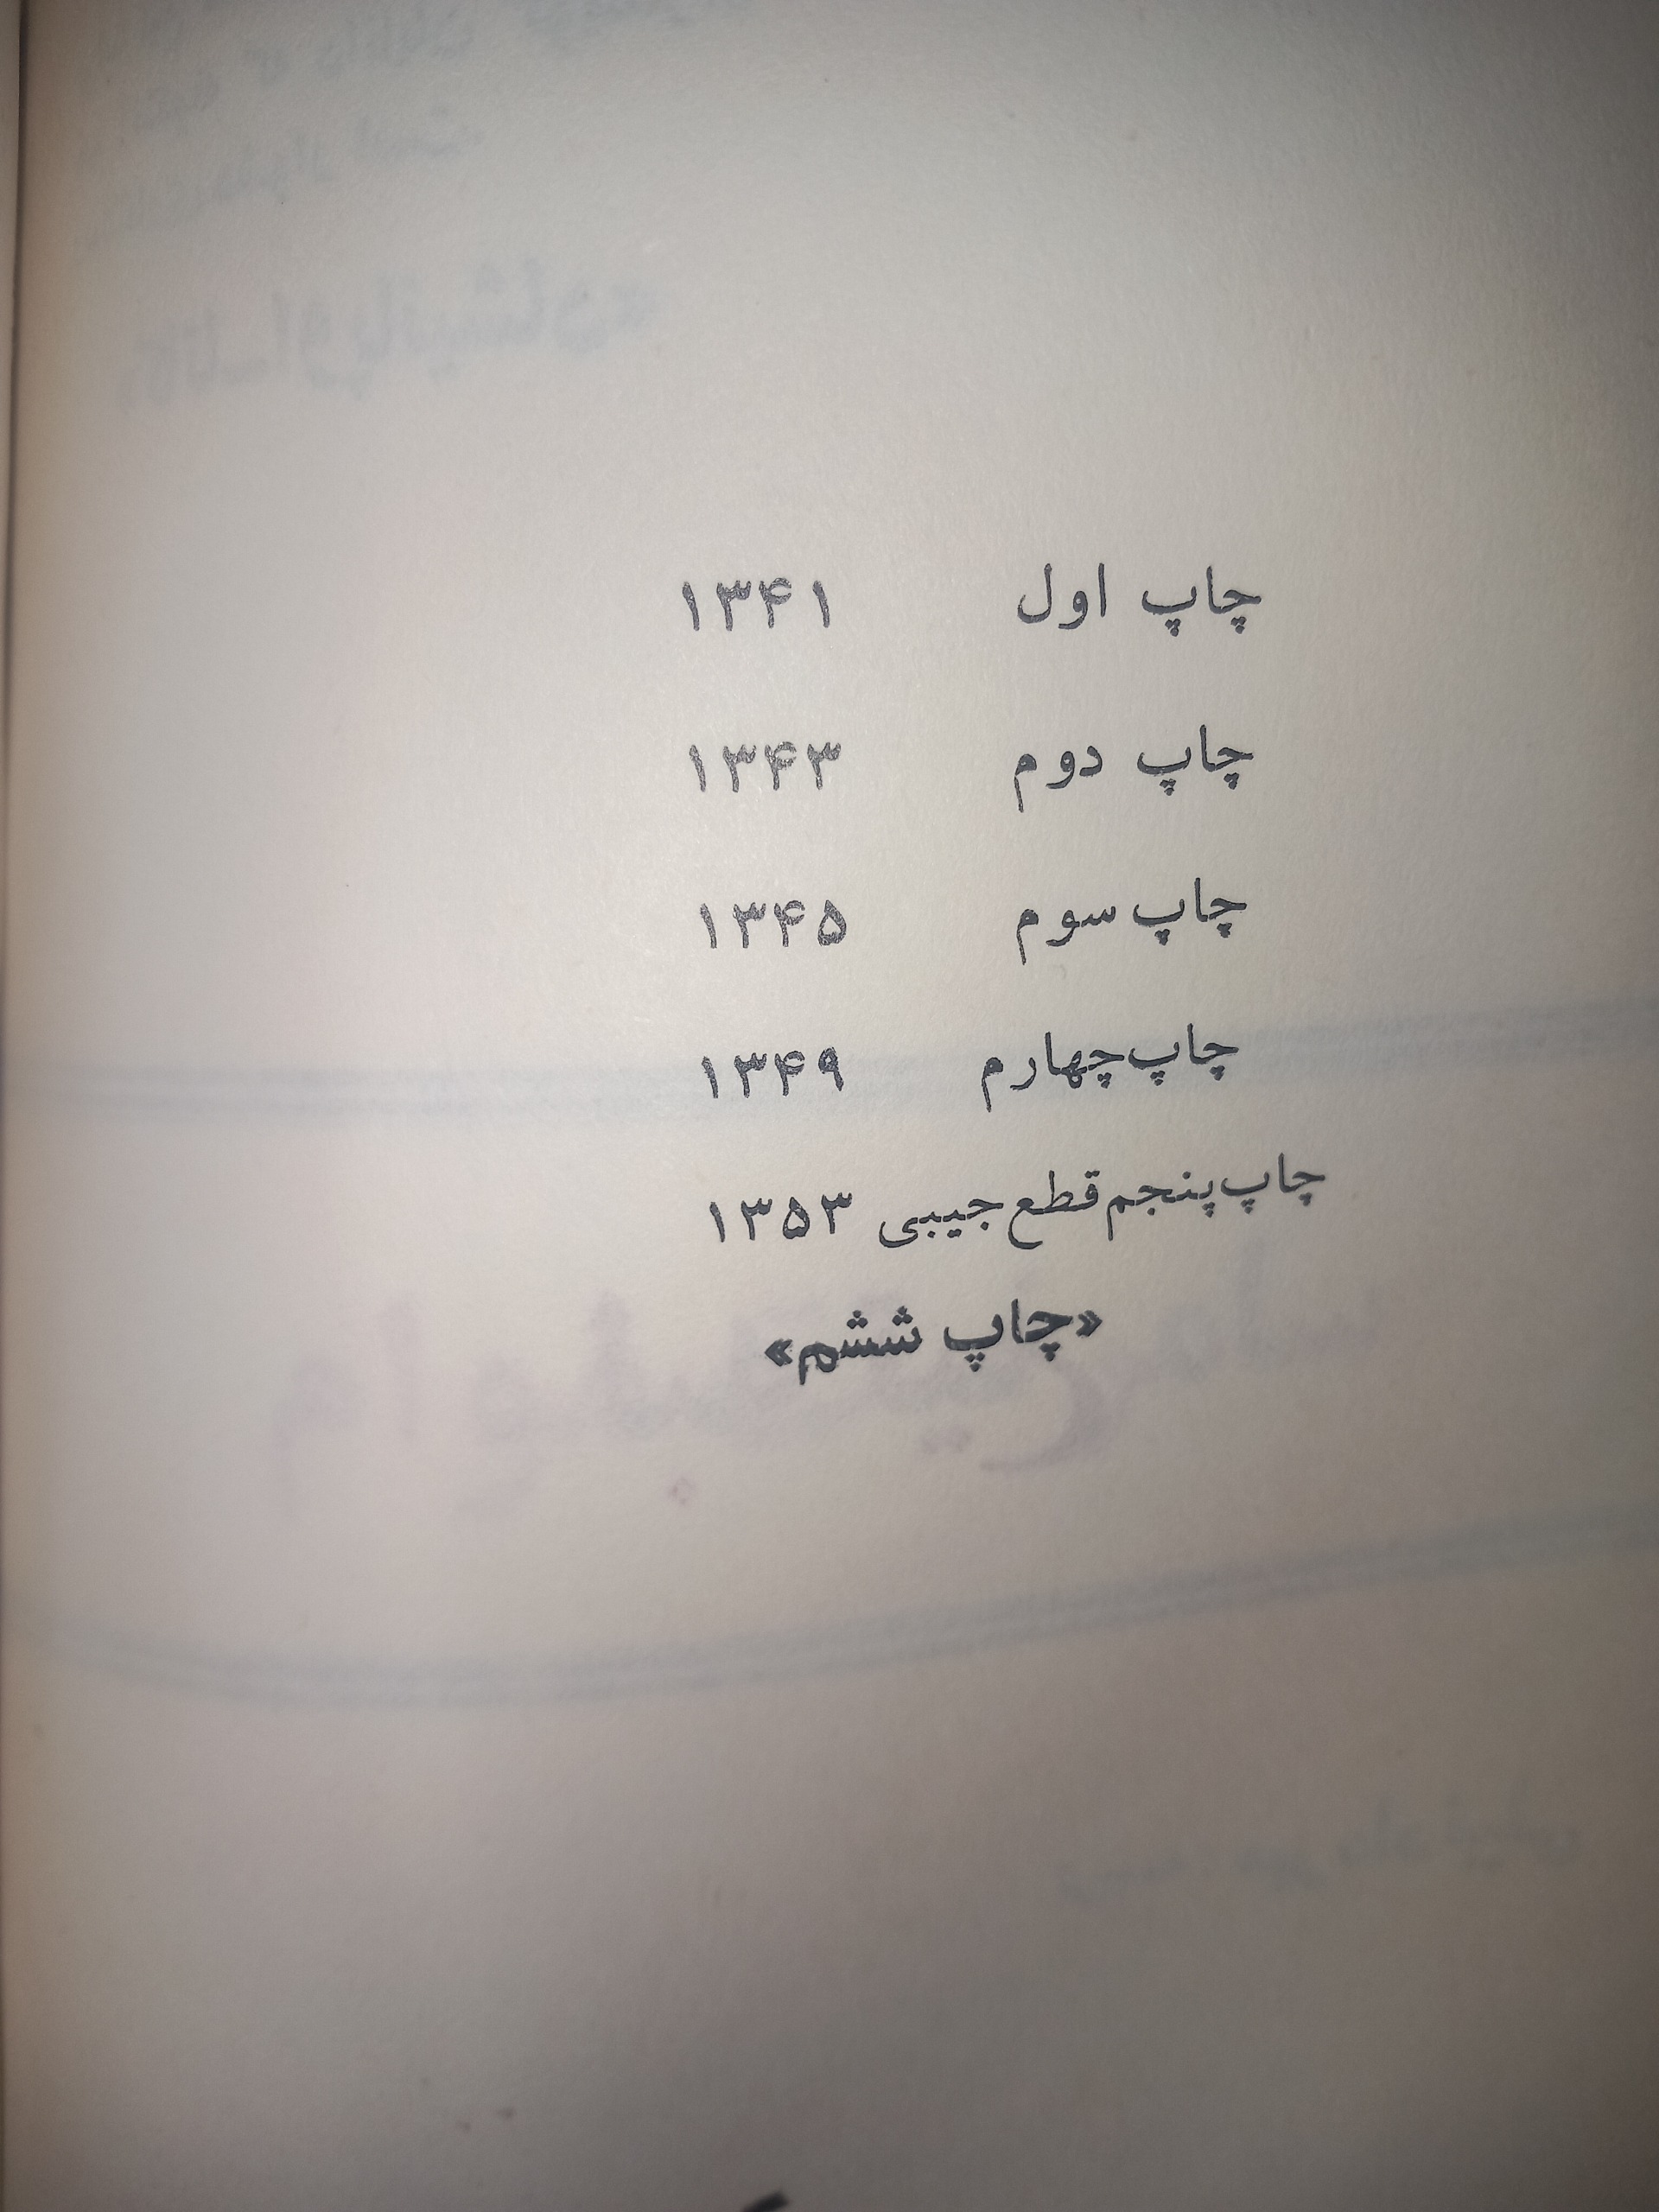 چاپ اول ۱۳۴۱
چاپ دوم ۱۳۴۳
چاپ سوم ۱۳۴۵
چاپ چهارم ۱۳۴۹
چاپ پنجم قطع جیبی ۱۳۵۳
«چاپ ششم»